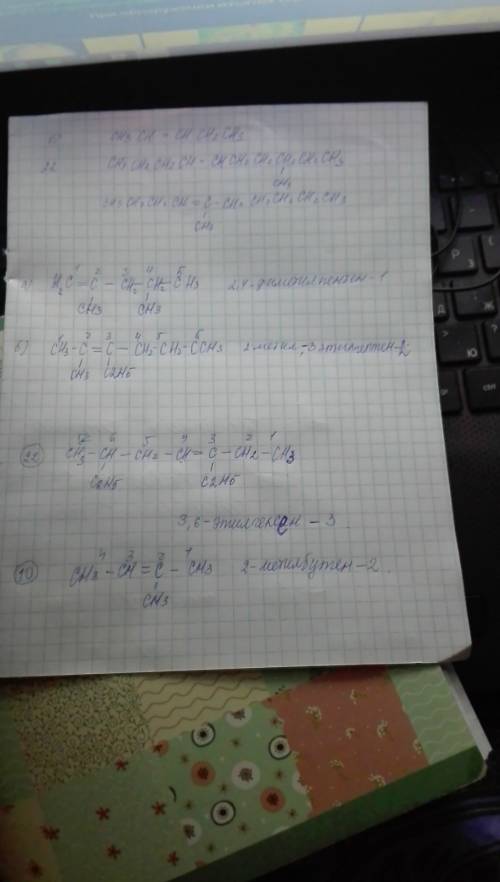 CH3 CH = CH CH2 CH3
22
CH3 CH2 CH2 CH - CH CH2 CH2 CH2 CH2 CH3
CH3
CH3 CH2 CH2 CH = C - CH2 CH2 CH2 CH2 CH3
CH3
1 2 3 4 5
а) H2C = C - CH2 - CH - CH3 2,4-диметилпентен-1
CH3 CH3
1 2 3 4 5 6
б) CH3 - C = C - CH2 - CH2 - CCH3 2 метил, -3 этилгептен-2
CH3 C2H5
7 6 5 4 3 2 1
22 CH3 - CH - CH2 - CH = C - CH2 - CH3
C2H5 C2H5
3,6-этилгексен-3.
4 3 2 1
10 CH3 - CH = C - CH3 2-метилбутен-2.
CH3